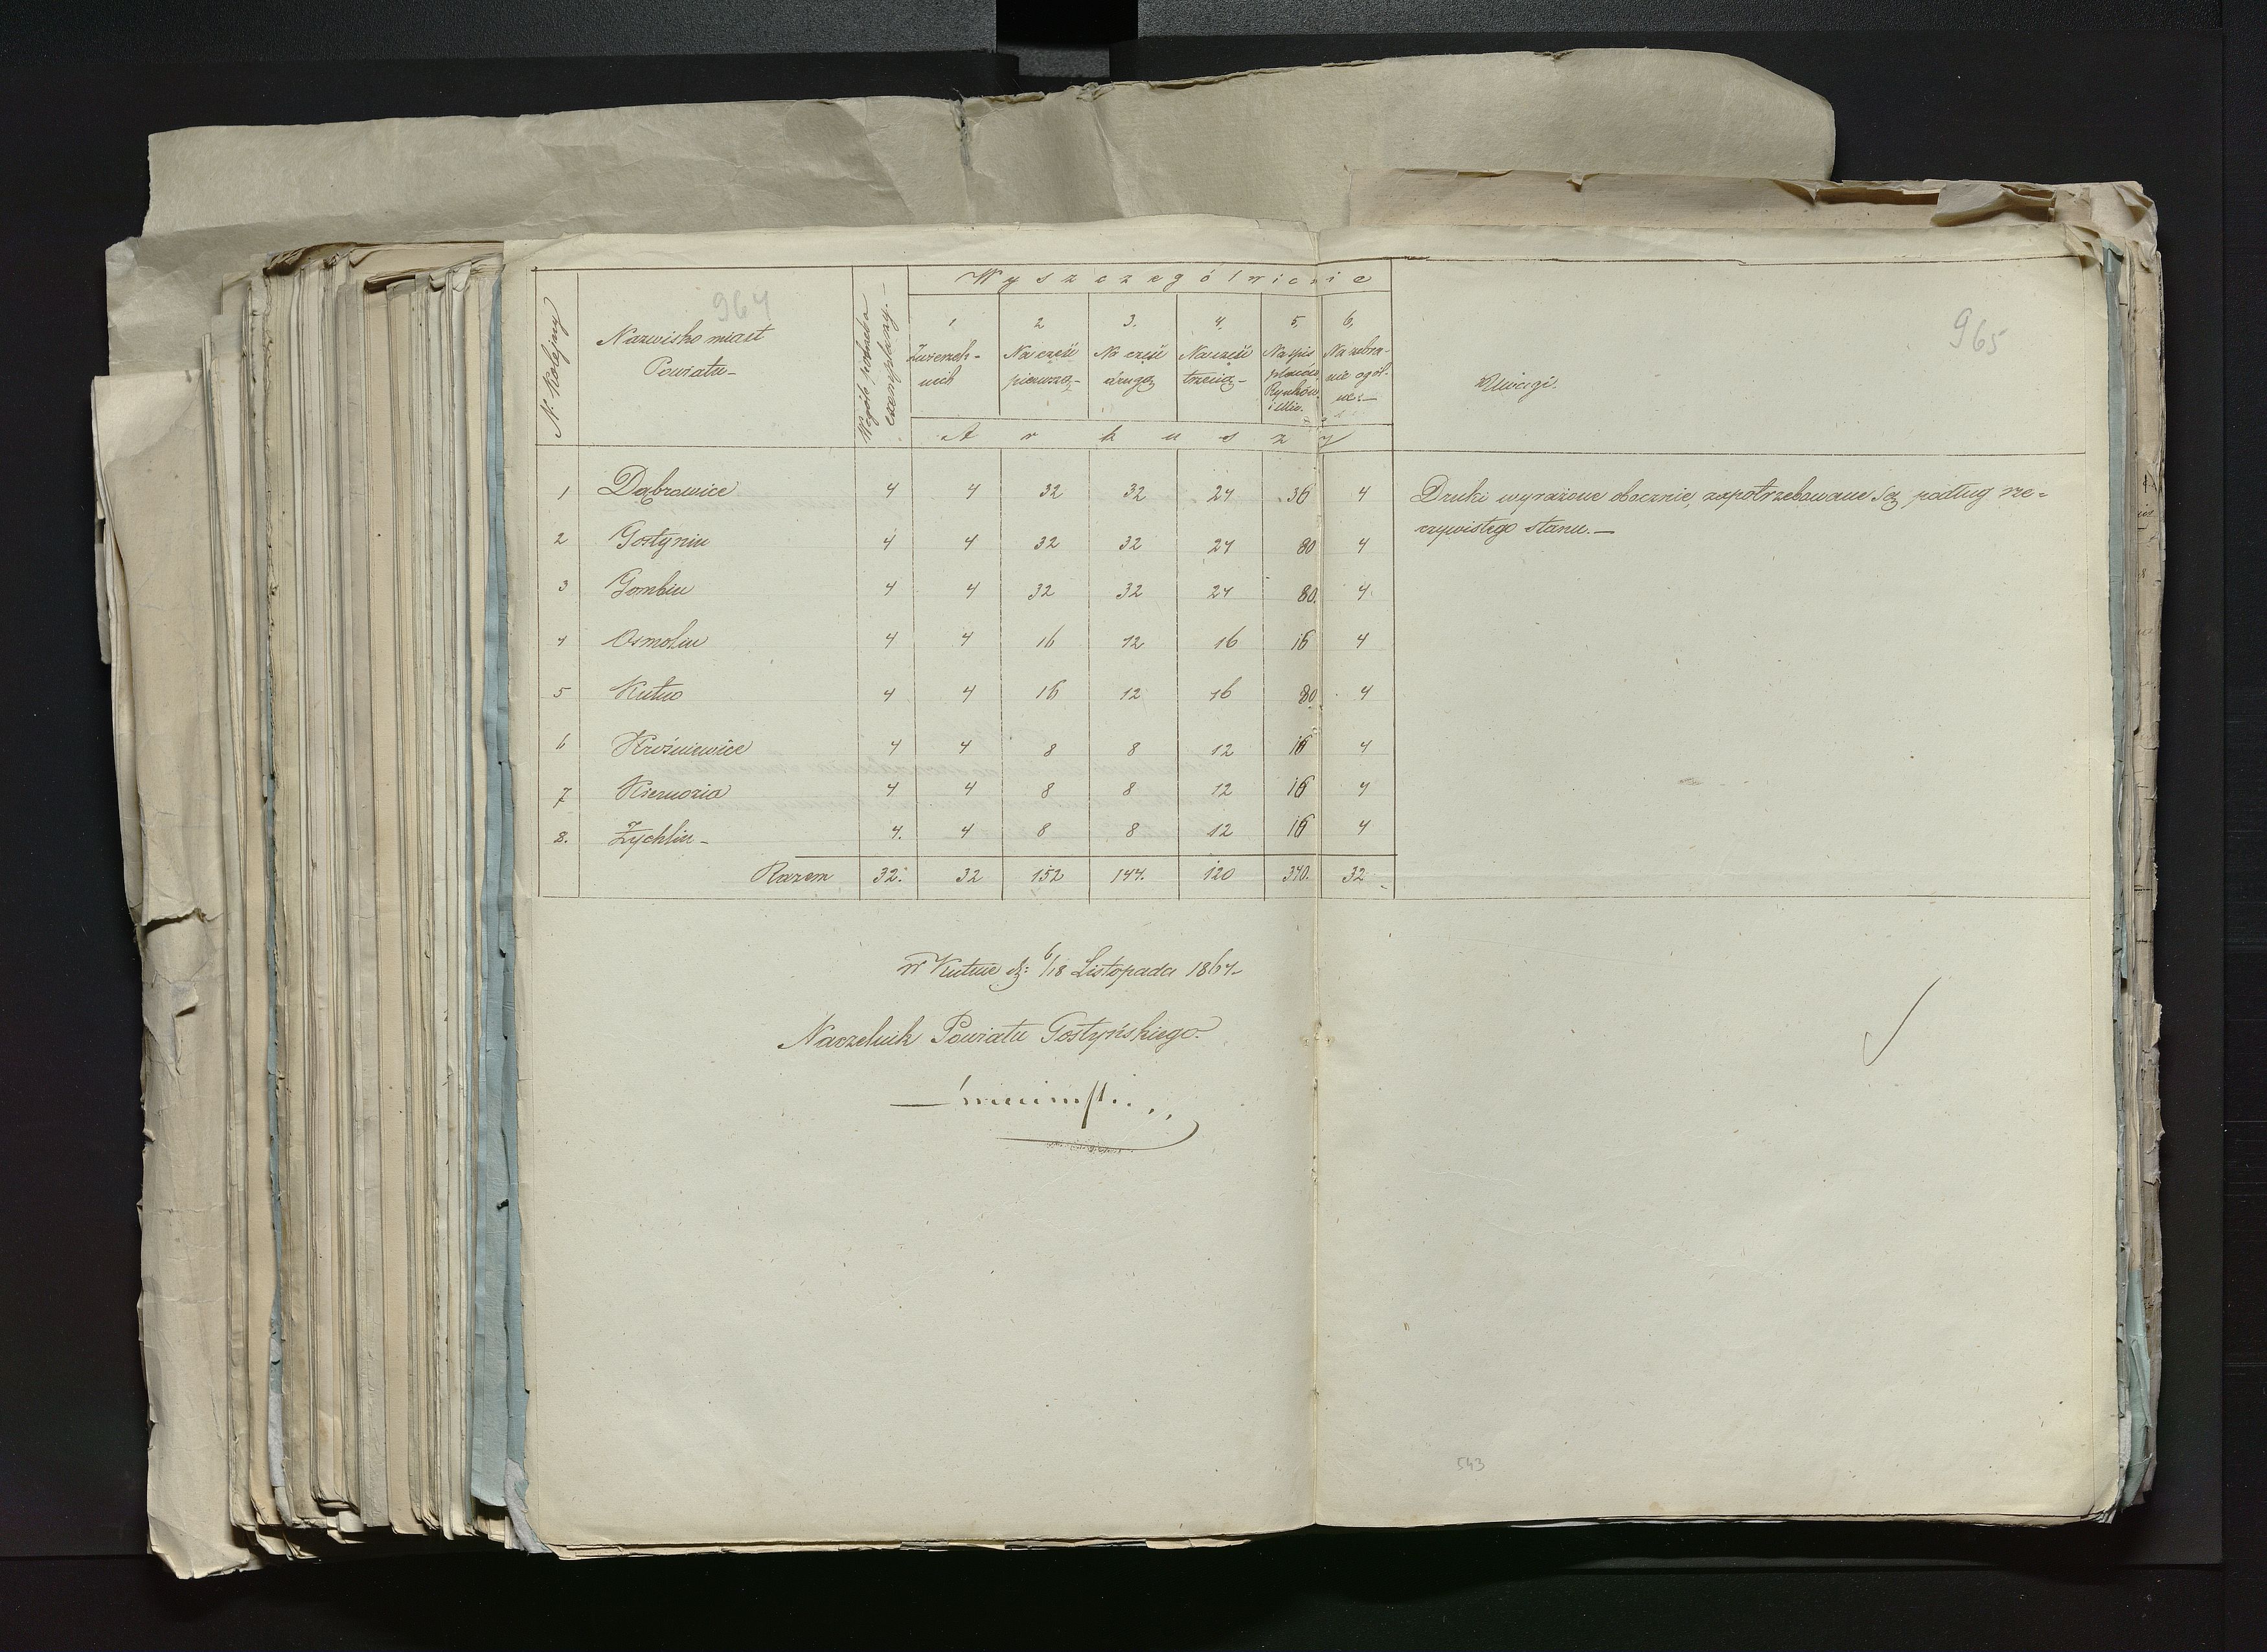 964
965
Wyszczególnienie
N. Kolejny
Nazwisko miast
Powiatu –
Wogóle potrzeba
exemplarzy. –
1. 2 3. 4. 5. 6.
Zwierzch-
nich
Na część
pierwszą –
Na część
drugą
Na część
trzecią –
Na spis
placów
Rynków
i Ulic.
Na zebra-
nie ogól-
ne. –
Arkuszy
Uwagi.
1 Dąbrowice 4 4 32 32 24 36 4
Druki wyrażone obocznie, zapotrzebowane są podług rze-
czywistego stanu. –
2 Gostynin 4 4 32 32 24 80 4
3 Gombin 4 4 32 32 24 80. 4
4 Osmolin 4 4 16 12 16 16 4
5 Kutno 4 4 16 12 16 80 4
6 Krośniewice 4 4 8 8 12 16 4
7 Kiernozia 4 4 8 8 12 16 4
8. Żychlin – 4. 4 8 8 12 16 4
Razem 32. 32 152 144. 120 340. 32
W Kutnie d: 6/18 Listopada 1864 –
Naczelnik Powiatu Gostyńskiego.
543